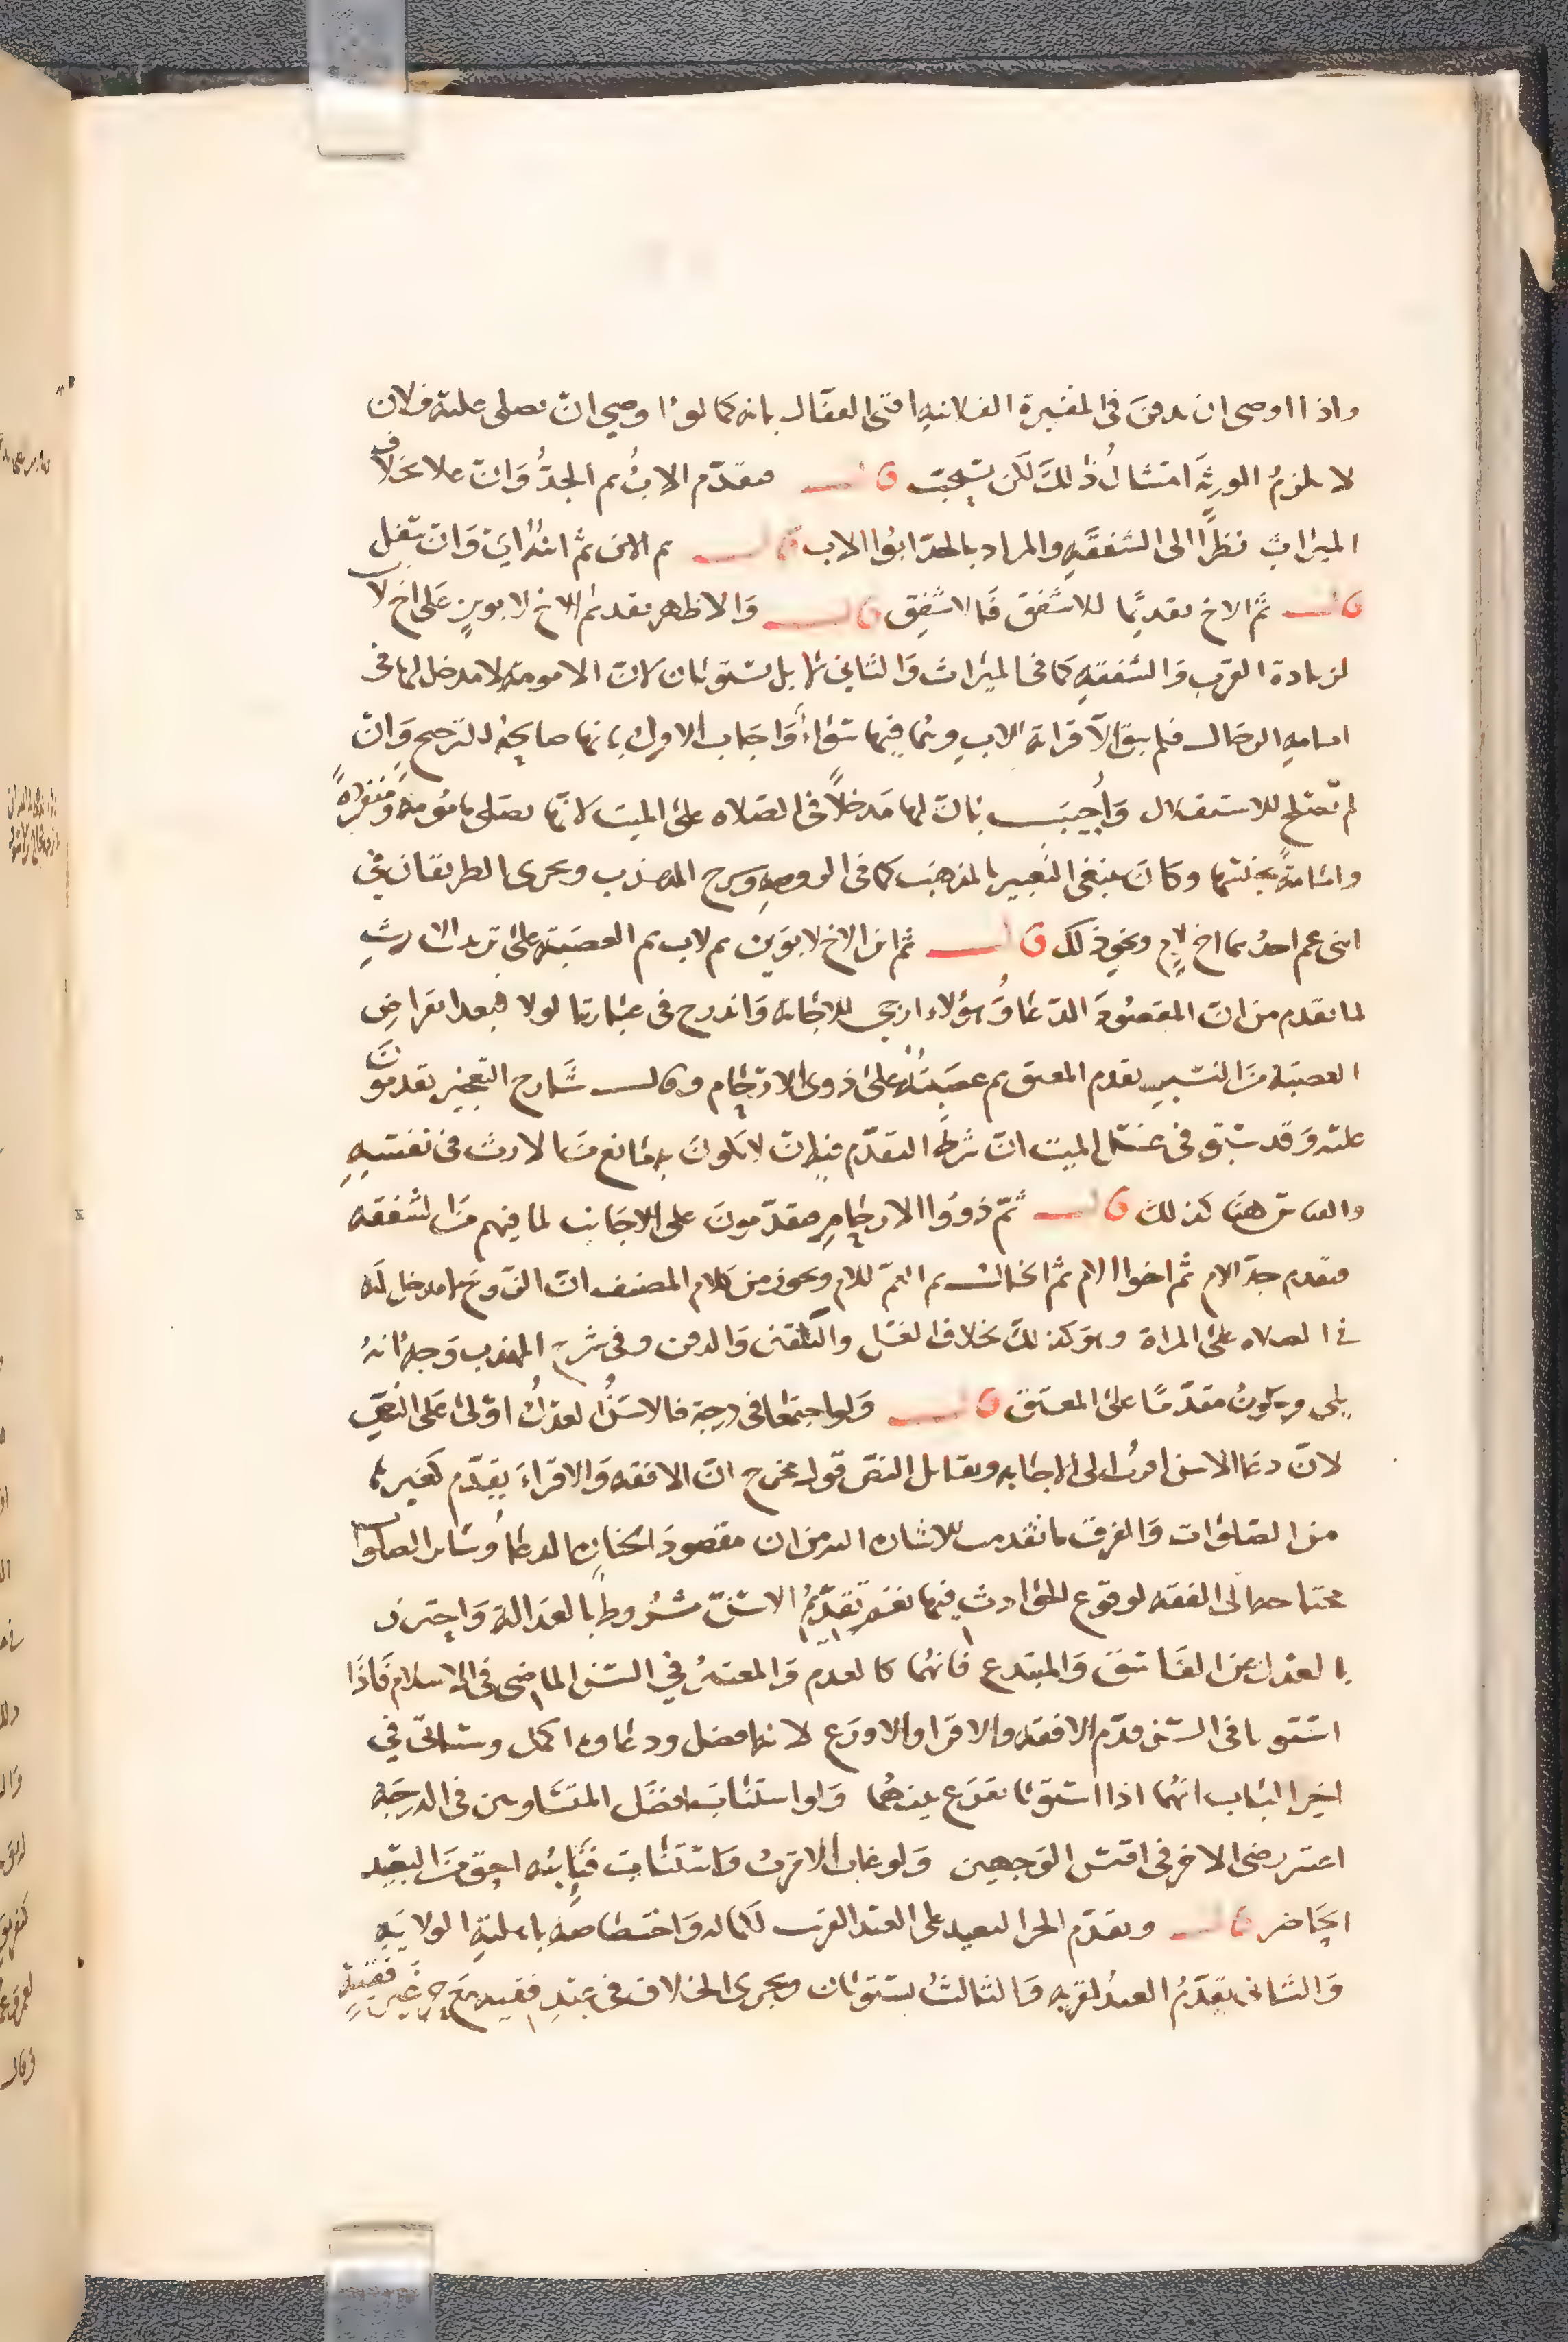 واذا اوصى ان يدفن فى المقبرة الفلانيه افتى القفال بانه كما لو اوصى ان يصلى عليه فلان
لا يلزم الورثة امتثال ذلك لكن يستحب قال فيقدم الاب ثم الجد وان علا بخلاف
الميراث نظرا الى الشفقه والمراد بالجد ابوا الاب قال ثم الابن ثم ابنه اى وان سفل
قال ثم الاخ تقديما للاشفق فالاشفق قال والاظهر تقديم الاخ لابوين على اخ لاب
لزيادة القرب والشفقه كما فى الميراث والثانى لا بل يستويان لان الامومه لا مدخل لها فى
امامه الرجال فلم يبق الا قرابة الاب وهما فيها سواء واجاب الاول بانها صالحة للترجيح وان
لم تصلح للاستقلال واجيب بان لها مدخلا فى الصلاه على الميت لانها تصلى مامومه ومنفرده
وامامة بجنسها وكان ينبغى التعبير بالمذهب كما فى الروضه وشرح المهذب ويجرى الطريقان فى
ابنى عم احدهما اخ لام ونحو ذلك قال ثم ابن الاخ لابوين ثم لاب ثم العصبة على ترتيب الارث
لما تقدم من ان المقصود الدعا وهؤلاء ارجى للاجابه واندرج فى عبارته الولا فبعد انقراض
العصبة من النسب يقدم المعتق ثم عصبته على ذوى الارحام وقال شارح التعجيز يقدمون
عليه وقد سبق فى غسل الميت ان شرط التقدم فيه ان لا يكون به مانع من الارث فى نفسه
والقياس هنا كذلك قال ثم ذووا الارحام مقدمون على الاجانب لما فيهم من الشفقه
فيقدم جد الام ثم اخوا الام ثم الخال ثم العم للام من كلام المصنف ان الزوج لا مدخل له
فى الصلاه على المراة وهو كذلك بخلاف الغسل والتكفين والدفن وفى شرح المهذب وجه انه
يلى ويكون مقدما على المعتق قال ولو اجتمعا فى درجة فالاسن العدل اولى على النص
لان دعا الاسن اقرب الى الاجابه ويقابل النص قول مخرج ان الافقه والاقراء يقدم كغيرها
من الصلوات والفرق ما تقدمت الاشاره اليه من ان مقصود الجنازه الدعا وسائر الصلوات
محتاجه الى الفقه لوقوع الحوادث فيها نعم تقديم الاسن مشروط بالعدالة واحترز
بالعدل عن الفاسق والمبتدع فانهما كالعدم والمعتبر فى السن الماضى فى الاسلام فاذا
استويا فى السن قدم الافقه والاقرا والاورع لانه افضل ودعاوه اكمل وسياتى فى
اخير الباب انهما اذا استويا يقرع بينهما ولو استناب افضل المتساويين فى الدرجة
اعتبر رضى الاخر فى اقيس الوجهين ولو غاب الاقرب واستناب فنائبه احق من البعيد
الحاضر قال ويقدم الحر البعيد على العبد القريب لكماله واختصاصه باهلية الولايه
والثانى يقدم العبد لقربه والثالث يستويان ويجرى الخلاف فى عبد فقيه مع حر غير فقيه